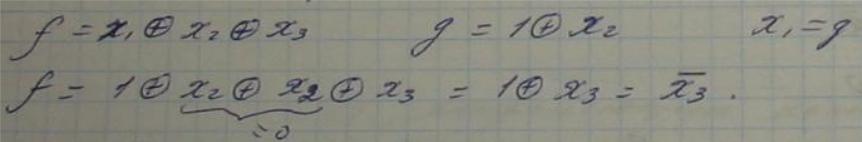 f = x₁ ⊕ x₂ ⊕ x₃ g = 1 ⊕ x₂ x₁ = g
f = 1 ⊕ x₂ ⊕ x₂ ⊕ x₃ = 1 ⊕ x₃ = x̄₃ .
= 0